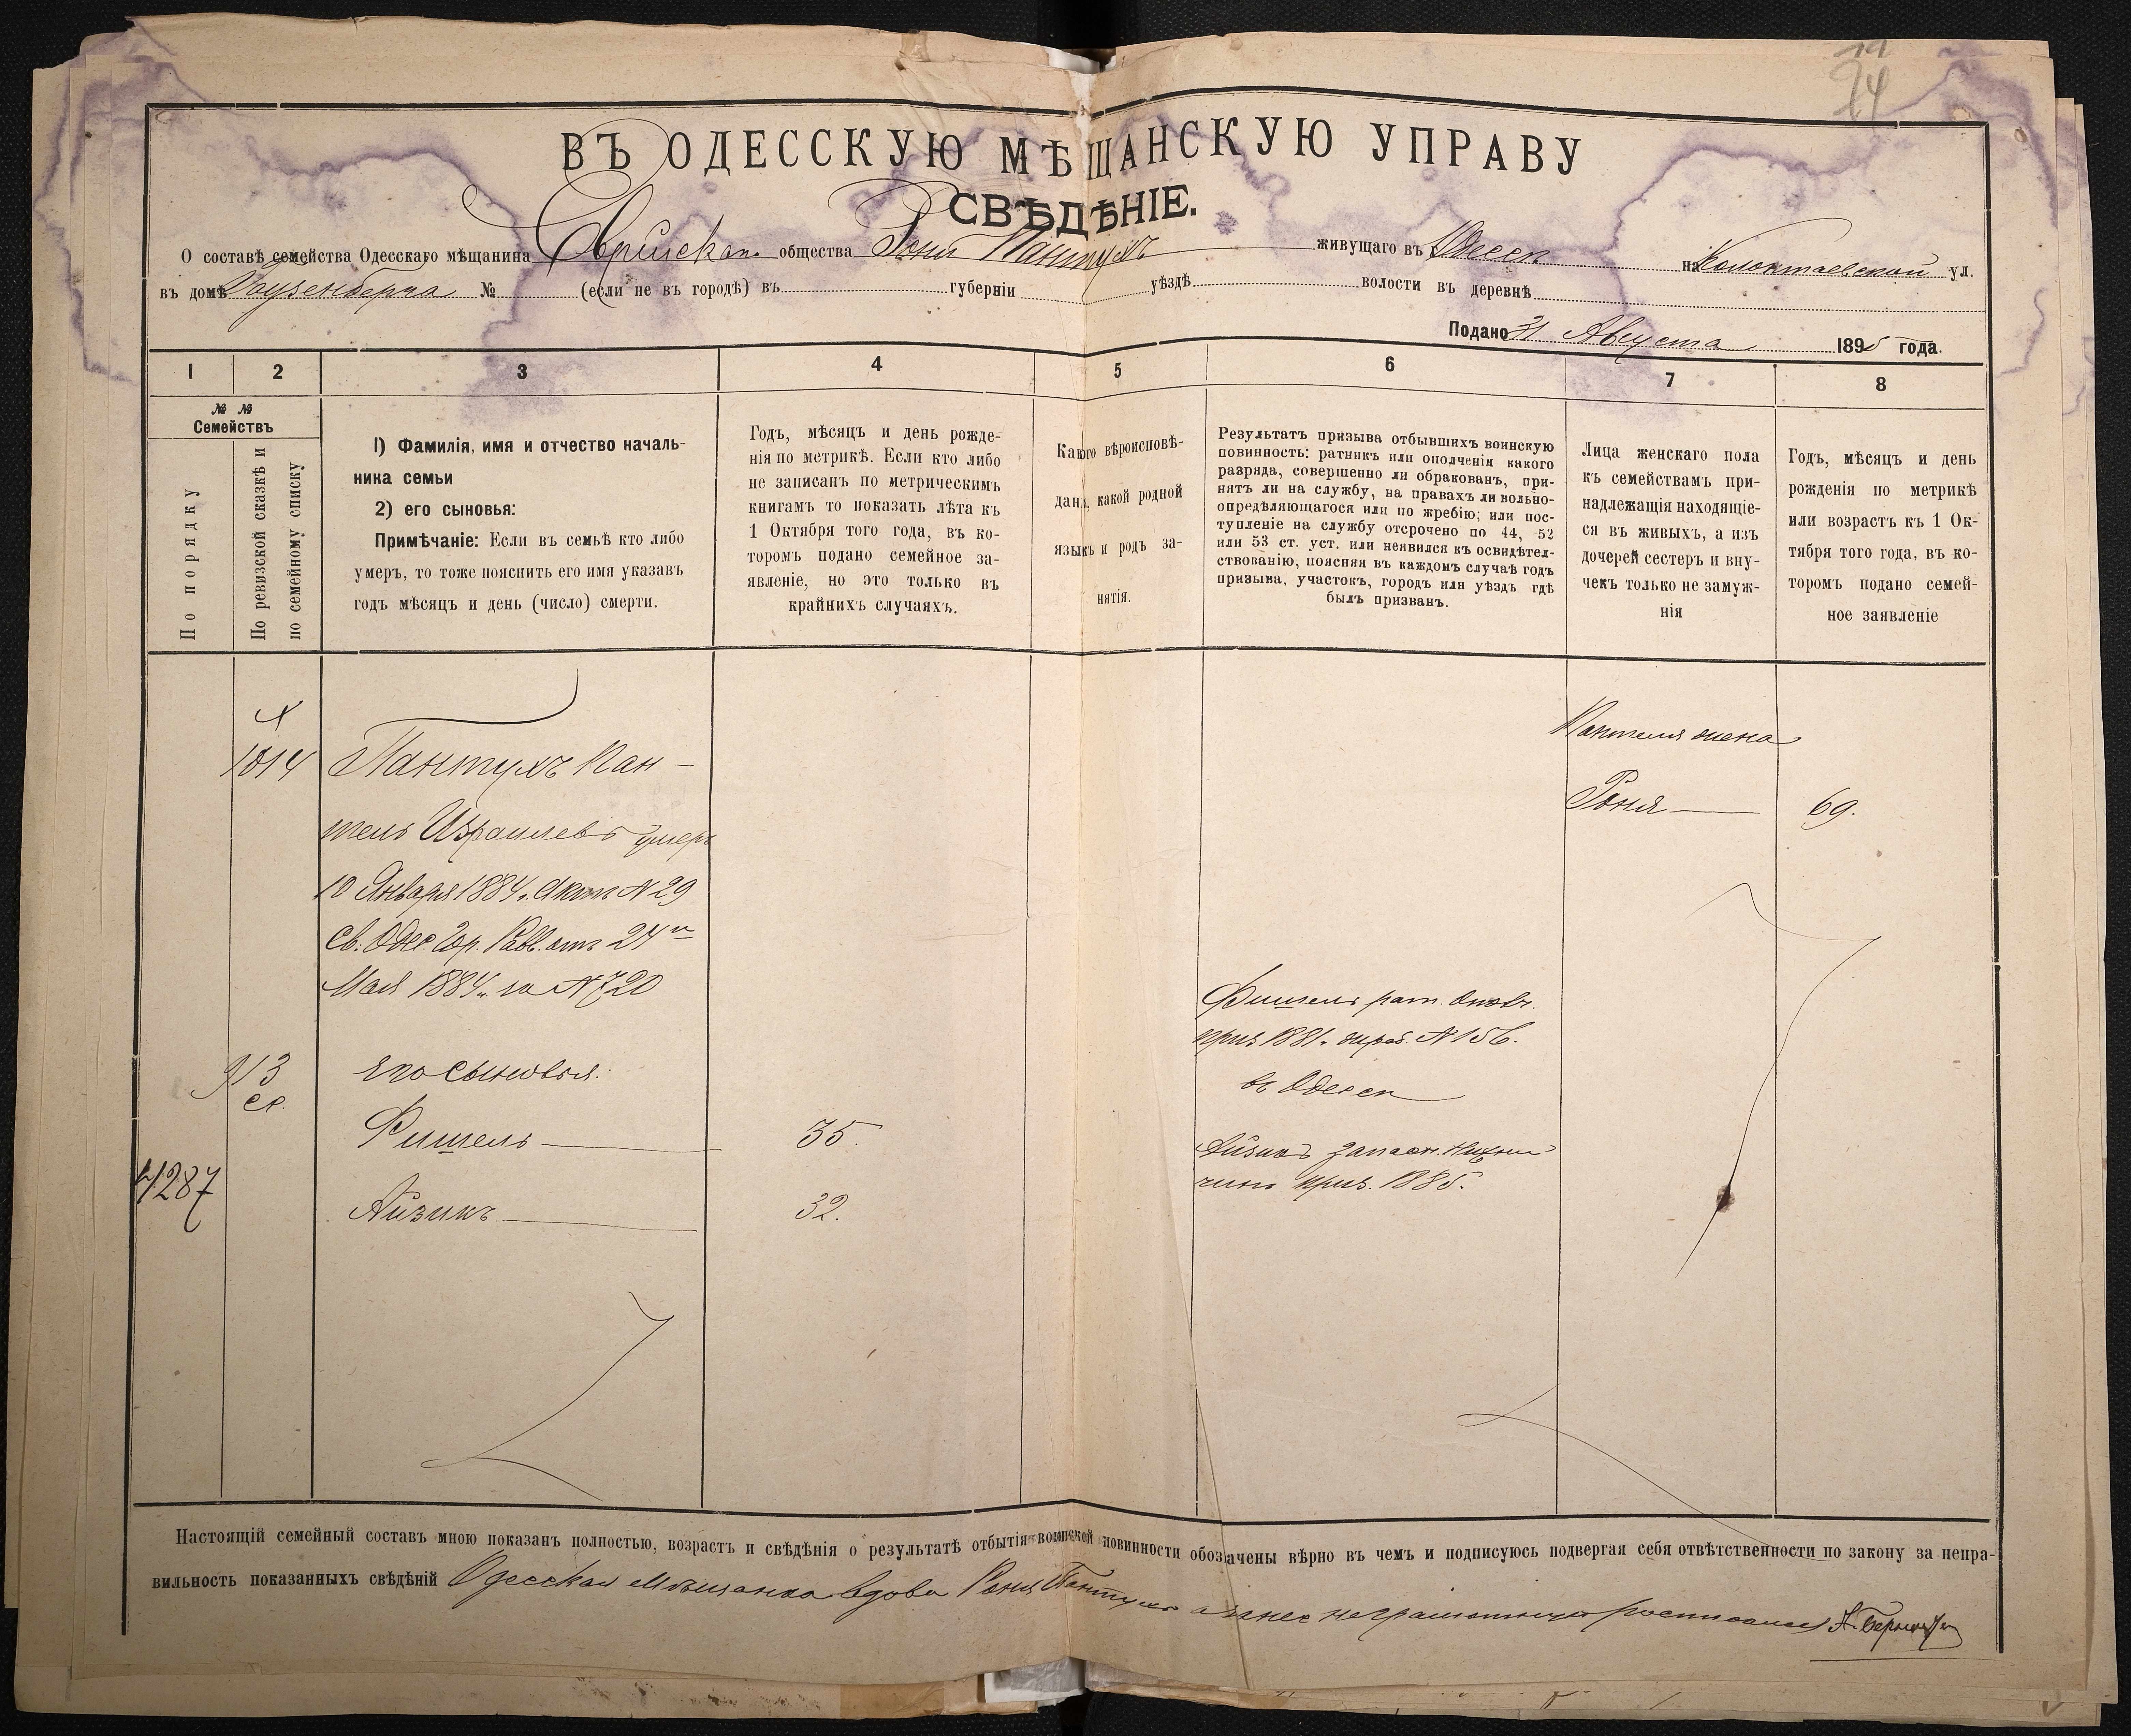 74
ВЪ ОДЕССКУЮ МѢЩАНСКУЮ УПРАВУ
СВѢДѢНІЕ.
О составѣ семейства Одесскаго мѣщанина Еврейскаго общества Рони Пантухъ живущаго въ Одессѣ на Колонтаевской ул.
въ домѣ № (если не въ городѣ) въ губерніи уѣздѣ волости въ деревнѣ
Подано 31 Августа 1895 года.
1 2 3 4 5 6 7 8
№ №
Семействъ
По порядку
По ревизской сказкѣ и
по семейному списку
1) Фамилія, имя и отчество началь-
ника семьи
2) его сыновья:
Примѣчаніе: Если въ семьѣ кто либо
умеръ, то тоже пояснить его имя указавъ
годъ мѣсяцъ и день (число) смерти.
Годъ, мѣсяцъ и день рожде-
нія по метрикѣ. Если кто либо
не записанъ по метрическимъ
книгамъ то показать лѣта къ
1 Октября того года, въ ко-
торомъ подано семейное за-
явленіе, но это только въ
крайнихъ случаяхъ.
Какого вѣроисповѣ-
данія, какой родной
языкъ и родъ за-
нятія.
Результатъ призыва отбывшихъ воинскую
повинность: ратникъ или ополченія какого
разряда, совершенно ли обракованъ, при-
нятъ ли на службу, на правахъ ли вольно-
опредѣляющагося или по жребію; или пос-
тупленіе на службу отсрочено по 44, 52
или 53 ст. уст. или неявился къ освидѣтел-
ствованію, поясняя въ каждомъ случаѣ годъ
призыва, участокъ, городъ или уѣздъ гдѣ
былъ призванъ.
Лица женскаго пола
къ семействамъ при-
надлежащія находящіе-
ся въ живыхъ, а изъ
дочерей сестеръ и вну-
чекъ только не замуж-
нія
Годъ, мѣсяцъ и день
рожденія по метрикѣ
или возрастъ къ 1 Ок-
тября того года, въ ко-
торомъ подано семей-
ное заявленіе
1014
Пантухъ Кан-
тель Израилевъ умеръ
10 Января 1884 г. Актъ № 29
Св. Одес. Гор. Равв. отъ 24го
Мая 1884 г. за № 720
Кантеля жена
Роня 69.
913
ск.
Его сыновья:
Фишель 35.
4287
Айзикъ 32.
Фишель рат. Опол.
приз 1881 г. жереб. № 156.
въ Одессѣ
Айзикъ запасн. Нижній
чинъ приз. 1885.
Настоящій семейный составъ мною показанъ полностью, возрастъ и свѣдѣнія о результатѣ отбытія воинской повинности обозначены вѣрно въ чемъ и подписуюсь подвергая себя отвѣтственности по закону за непра-
вильность показанныхъ свѣдѣній Одесская мѣщанка вдова Роня Пантухъ а за нее неграмотную росписался